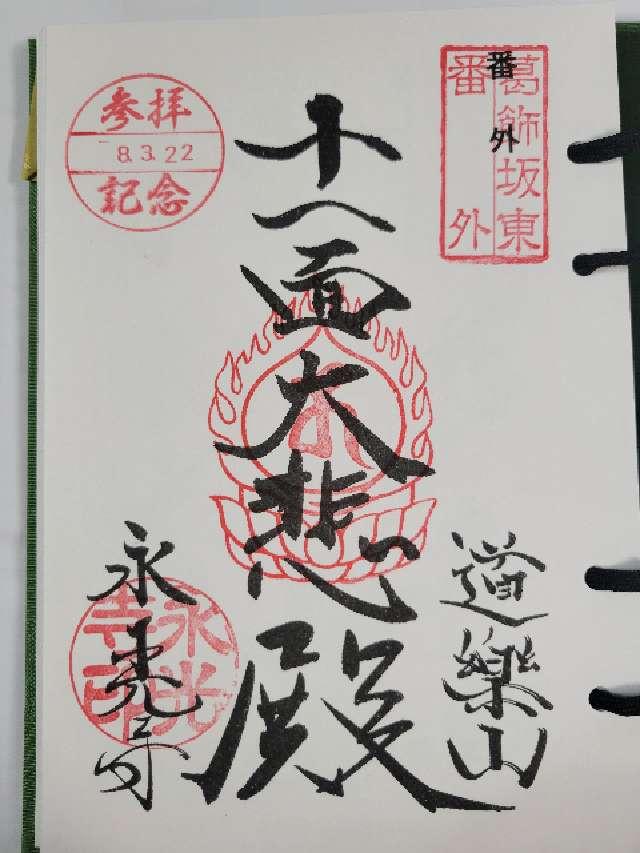 葛飾坂東
番外
番外
道樂山
十一面大悲殿
参拝
8.3.22
記念
永光寺
永光
寺印